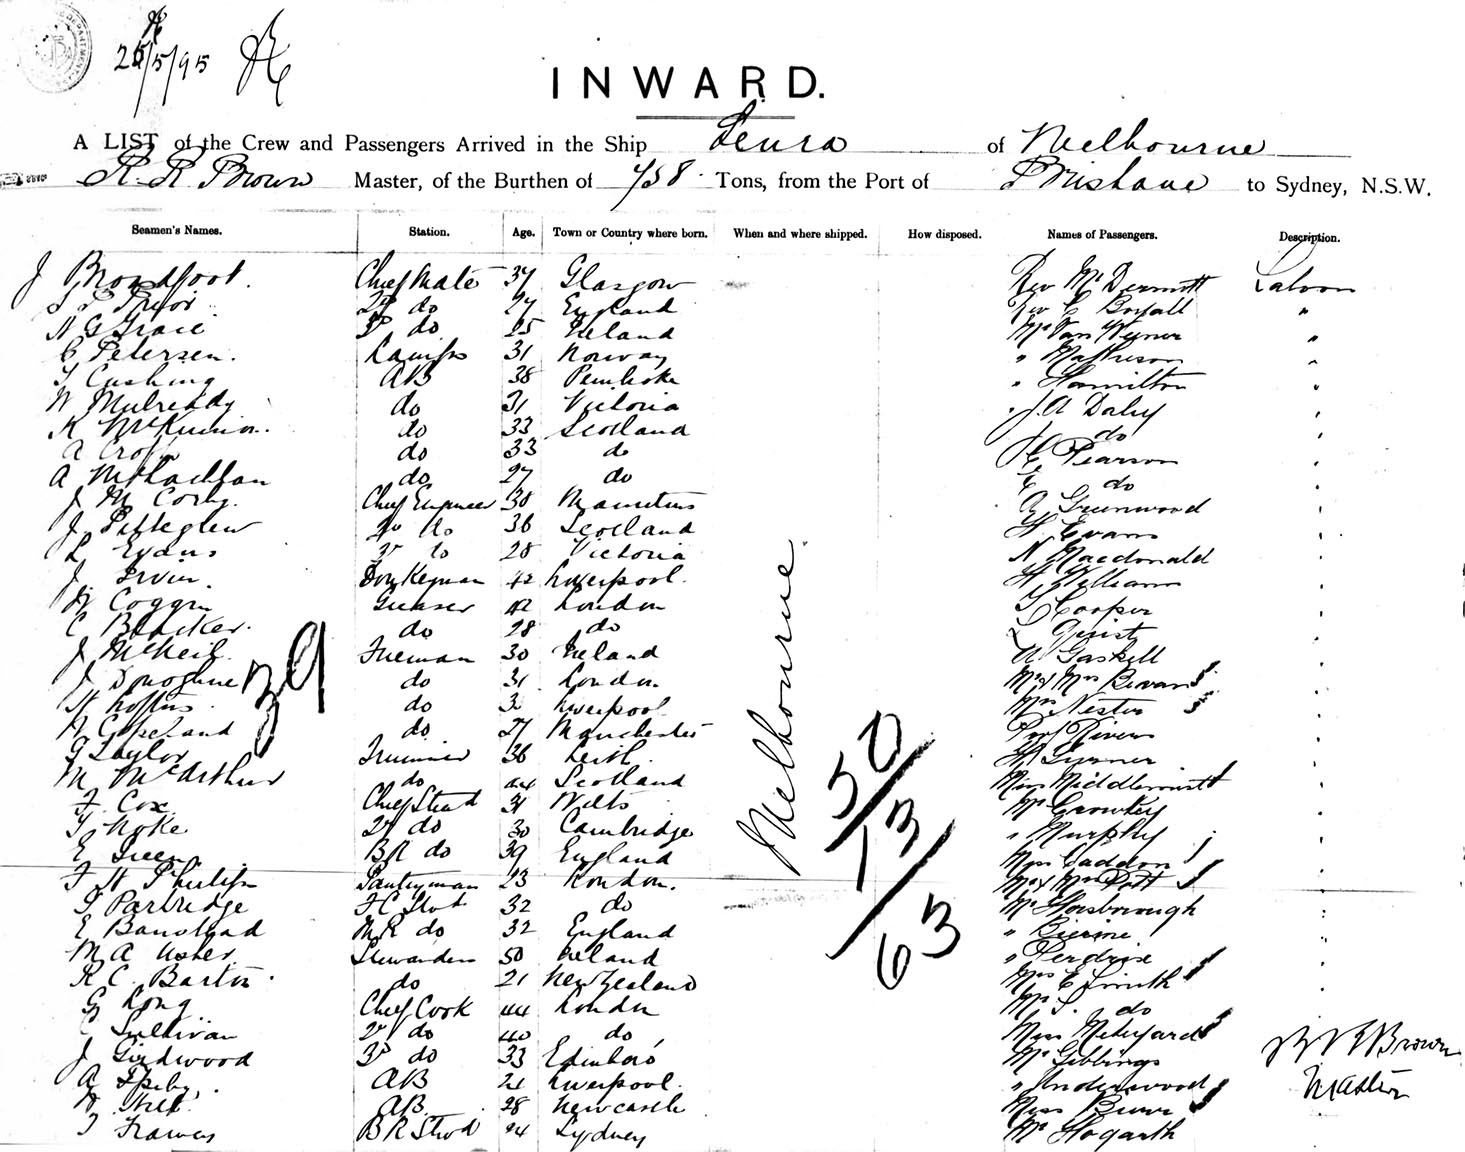 25/5/95
INWARD.
A LIST of the Crew and Passengers Arrived in the Ship Leura of Melbourne
R. R. Brown Master, of the Burthen of 758 Tons, from the Port of Brisbane to Sydney, N.S.W.
Seamen's Names. Station. Age. Town or Country where born. When and where shipped. How disposed. Names of Passengers. Description.
J Broadfoot. Chief Mate 37 Glasgow Rev McDermott Saloon
2d do 27 England Rev "
N G Grace 3d do 25 Ireland Mr Van "
C Petersen. Lamps 31 Norway " Mathieson "
T Cushing AB 38 Pembroke " Hamilton "
W Mulready do 31 Victoria J. A Daly "
K McKinnon. do 33 Scotland do
A Croft do 33 do Pearson
A McLachlan do 27 do E do
J M Corby. Chief Engineer 38 Mauritius Greenwood
J Pettegrew 2d do 36 Scotland Evans
L Evans 3d do 28 Victoria N Macdonald
J Irvin. Donkeyman 42 Liverpool. William
Coggin Greaser 42 London Cooper
C do 28 do
J McNeil Fireman 30 Ireland Gaskell
J Donoghue do 31 London. Mr & Mrs Bevan
H Loftus do Liverpool Mrs Nester
Copeland do 27 Manchester Prof Rivers
G Taylor Trimmer 36 Leith Turner
M McArthur do 44 Scotland Miss Middlemist
F. Cox Chief Stwd 31 Wilts Mr Crowley
T Noke 2d do 30 Cambridge " Murphy
E Green BR do 39 England
F H Philips Pantryman 23 London. Mr & Mrs Pott
Partridge F C Stwd 32 do Mr Horsborough
E Banstead M R do 32 England "
M A Usher Stewardess 50 Ireland " Perdrix
R C. Barton do 21 New Zealand Mrs E Smith
G Long Chief Cook 44 London do
C Sullivan 2d do 40 do Miss
J Girdwood 3d do 33 Edinboro' Mr Gibbings
A AB 21 Liverpool. " Underwood
Hill AB. 28 Newcastle Miss
Frances BR Stwd 24 Sydney Mr Hogarth
39
Melbourne
50
13
63
R R Brown
Master